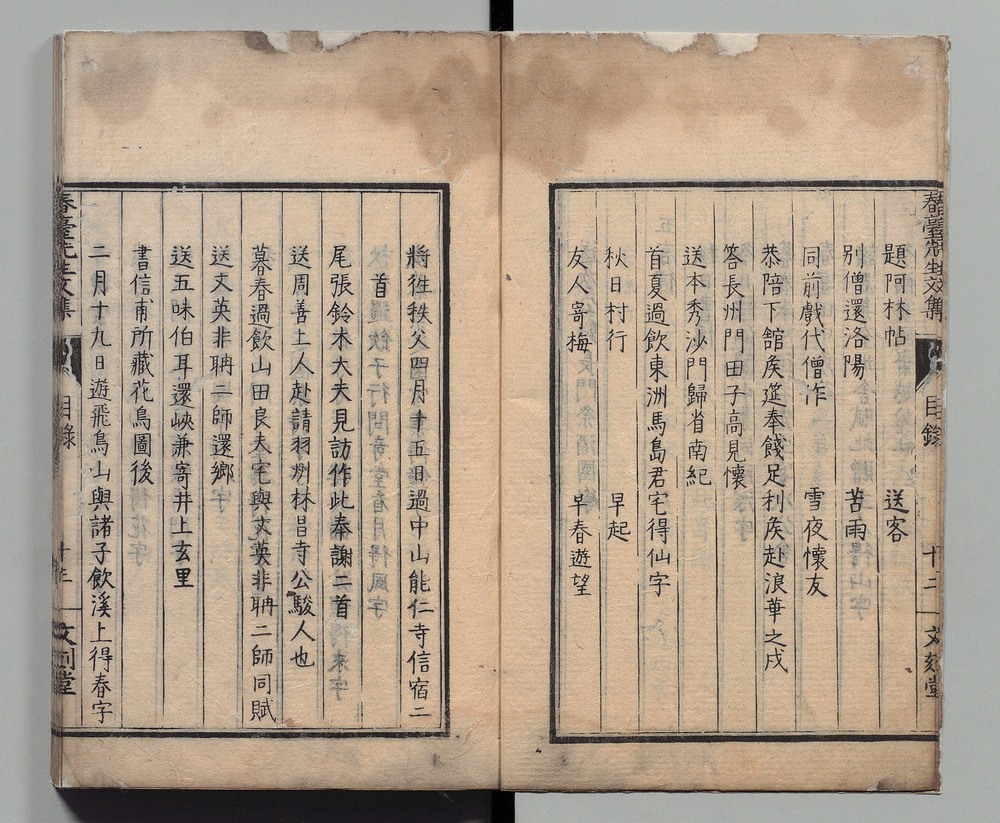 題阿林帖 送客
別僧還洛陽 苦雨
同前戲代僧作 雪夜懷友
恭陪下館矦筵奉餞足利矦赴浪華之戍
答長州門田子高見懷
送本秀沙門歸省南紀
首夏過飲東洲馬島君宅得仙字
秋日村行 早起
友人寄梅 早春遊望
將徃秩父四月十五日過中山能仁寺信宿二
首
尾張鈴木大夫見訪作此奉謝二首
送周善上人赴請羽州林昌寺公駿人也
暮春過飲山田良夫宅與文英非聃二師同賦
送文英非聃二師還鄉
送五味伯耳還峽兼寄井上玄里
書信甫所藏花鳥圖後
二月十九日遊飛鳥山與諸子飲溪上得春字